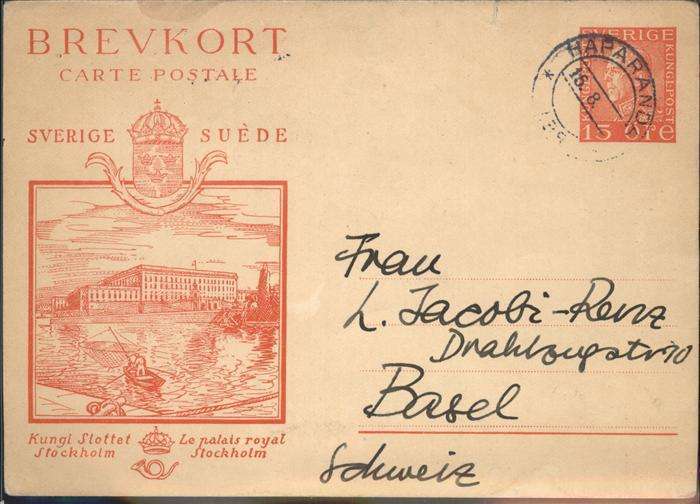 BREVKORT
CARTE POSTALE
SVERIGE SUÈDE
SVERIGE
KUNGL.POST
15 ÖRE
HAPARANDA
16.8.
Frau
L. Jacobi-Renz
Drahtzugstr. 70
Basel
Schweiz
Kungl Slottet Le palais royal
Stockholm Stockholm